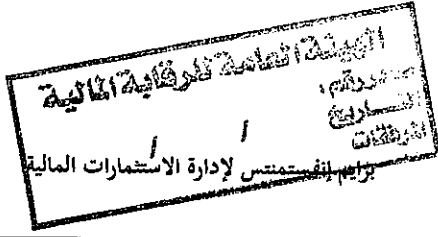 الهيئة العامة للرقابة المالية
صادر رقم :
التاريخ / /
المرفقات
برايم إنفستمنتس لإدارة الاستثمارات المالية